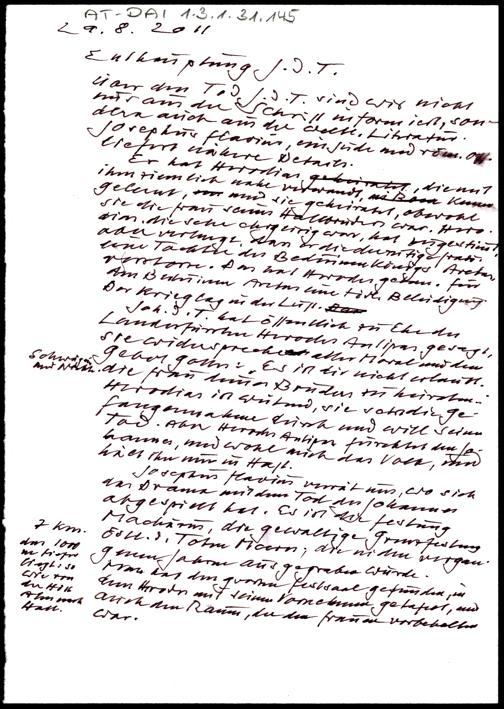 AT-DAI 1.3.1.31.145
29.8.2011
Enthauptung J.d.T.
über den Tod J.d.T. sind wir nicht
nur aus der Schrift informiert, son-
dern auch aus der weltl. Literatur.
Josephus Flavius, ein Jude und röm.
liefert nähere Details.
Er hat Herodias geheiratet, die mit
ihm ziemlich nahe verwandt, kennen
gelernt, und sie geheiratet, obwohl
sie die Frau seines Halbbruders war. Hero-
dias, die sehr ehrgeizig war, hat zugestimmt,
aber verlangt, dass er die derzeitige Frau,
eine Tochter des Beduinenkönigs Aretas
verstosse. Das hat Herodes getan. Für
den Beduinen Aretas eine tiefe Beleidigung.
Der Krieg lag in der Luft.
Joh.d.T. hat öffentlich zur Ehe des
Landesfürsten Herodes Antipas gesagt,
sie widerspreche aller Moral und dem
Gebot Gottes: „Es ist dir nicht erlaubt,
die Frau deines Bruders zu heiraten.
Schwägerin
und Nichte.
Herodias ist wütend, sie setzt die Ge-
fangennahme durch und will seinen
Tod. Aber Herodes Antipas fürchtet den Jo-
hannes, und wohl auch das Volk, und
hält ihn nur in Haft.
Josephus Flavius verrät uns, wo sich
das Drama mit dem Tod des Johannes
abgespielt hat. Es ist die Festung
Machärus, die gewaltige Grenzfestung
östl. d. Toten Meeres; die in den vergan-
genen Jahren ausgegraben wurde.
7 km.
das 1000
m tiefer
liegt; so
wie von
der
nach
Hall.
Man hat den grossen Festsaal gefunden, in
dem Herodes mit seinen Vornehmen getafelt, und
auch den Raum, der den Frauen vorbehalten
war.